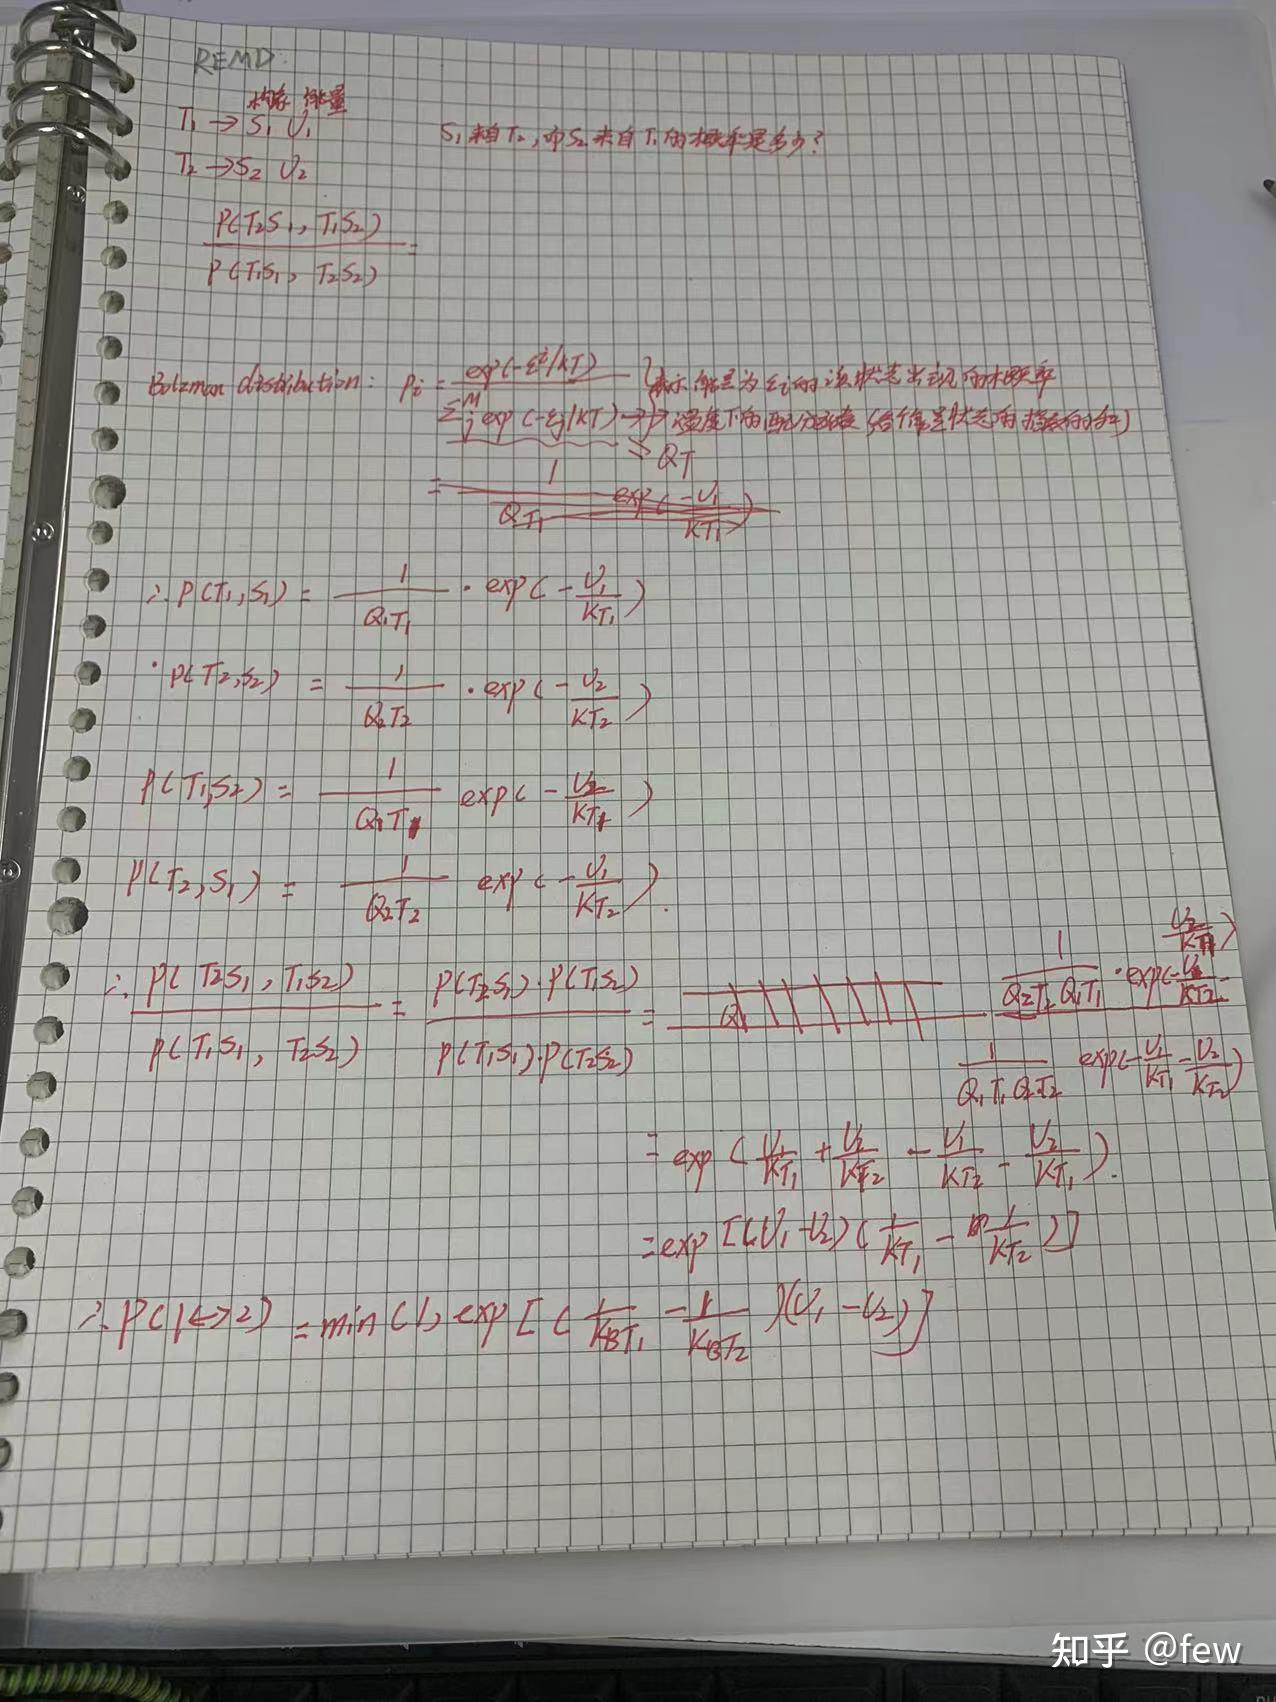 REMD:
构象 能量
T₁ → S₁ U₁
S₁来自T₂,而S₂来自T₁的概率是多少?
T₂ → S₂ U₂
P(T₂S₁, T₁S₂) / P(T₁S₁, T₂S₂) =
Bolzman distribution: Pi = exp(-εi/kT) / Σ_j^M exp(-εj/kT)
表示能量为εi的该状态出现的概率
→ 温度下的配分函数(各个能量状态的指数的和)
→ QT
= 1/QT₁ exp(-U₁/KT₁)
∴ P(T₁,S₁) = 1/Q₁T₁ · exp(-U₁/KT₁)
· P(T₂,S₂) = 1/Q₂T₂ · exp(-U₂/KT₂)
P(T₁,S₂) = 1/Q₁T₁ exp(-U₂/KT₁)
P(T₂,S₁) = 1/Q₂T₂ exp(-U₁/KT₂).
∴ P(T₂S₁, T₁S₂) / P(T₁S₁, T₂S₂) = P(T₂S₁)·P(T₁S₂) / P(T₁S₁)·P(T₂S₂) = 1/Q₂T₂Q₁T₁ · exp(-U₁/KT₂ - U₂/KT₁) / 1/Q₁T₁Q₂T₂ exp(-U₁/KT₁ - U₂/KT₂)
= exp(U₁/KT₁ + U₂/KT₂ - U₁/KT₂ - U₂/KT₁).
= exp[(U₁-U₂)(1/KT₁ - 1/KT₂)]
∴ P(1↔2) = min(1, exp[(1/K_BT₁ - 1/K_BT₂)(U₁-U₂)]
知乎 @few